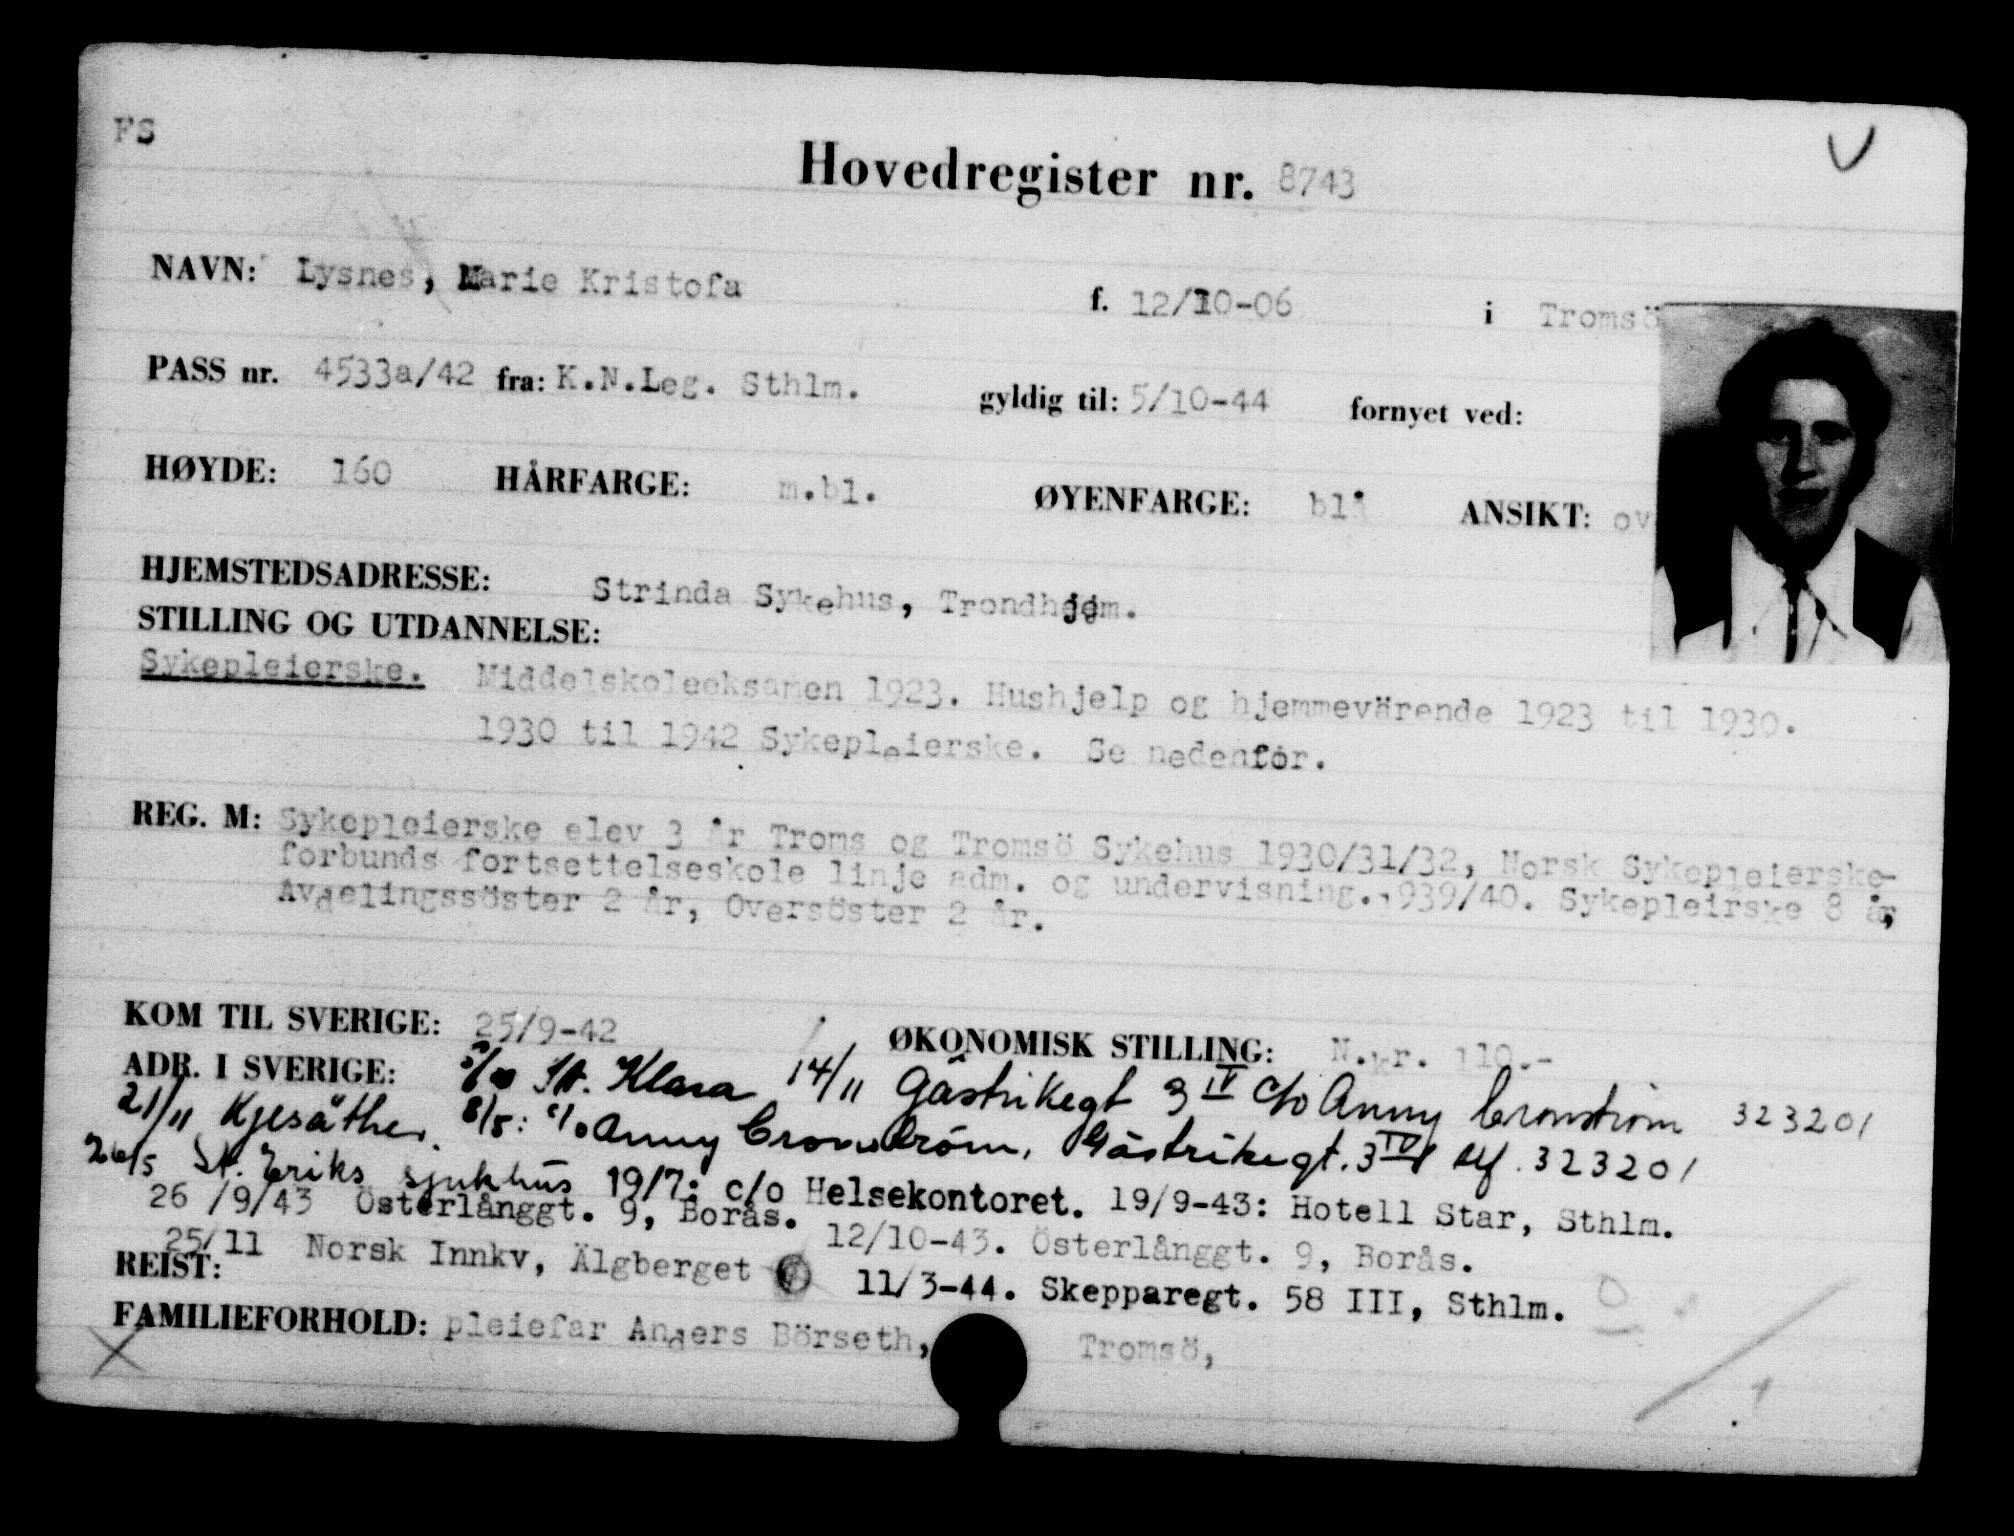 FS
Hovedregister nr. 8743
NAVN: Lysnes, Marie Kristofa f. 12/10-06 i Tromsö
PASS nr. 4533a/42 fra: K.N.Leg. Sthlm. gyldig til: 5/10-44 fornyet ved:
HØYDE: 160 HÅRFARGE: m.bl. ØYENFARGE: blå ANSIKT: ov
HJEMSTEDSADRESSE: Strinda Sykehus, Trondhjem.
STILLING OG UTDANNELSE:
Sykepleierske. Middelskoleeksamen 1923. Hushjelp og hjemmevärende 1923 til 1930.
1930 til 1942 Sykepleierske. Se nedenfor.
REG. M: Sykepleierske elev 3 år Troms og Tromsö Sykehus 1930/31/32, Norsk Sykepleierske-
forbunds fortsettelseskole linje adm. og undervisning. 1939/40. Sykepleirske 8 år,
Avdelingssöster 2 år, Oversöster 2 år.
KOM TIL SVERIGE: 25/9-42 ØKONOMISK STILLING: N.kr. 110.-
ADR. I SVERIGE: St. Klara 14/11 Gästrikegt 3 IV c/o Anny Cronström 323201
21/11 Kjesäther. 8/5: c/o Anny Cronström, Gästrikegt. 3 IV tlf. 323201
26/5 St. Eriks sjukhus 19/7: c/o Helsekontoret. 19/9-43: Hotell Star, Sthlm.
26/9/43 Österlånggt. 9, Borås. 12/10-43. Österlånggt. 9, Borås.
25/11 Norsk Innkv, Älgberget 11/3-44. Skepparegt. 58 III, Sthlm.
REIST:
FAMILIEFORHOLD: pleiefar Anders Börseth, Tromsö,